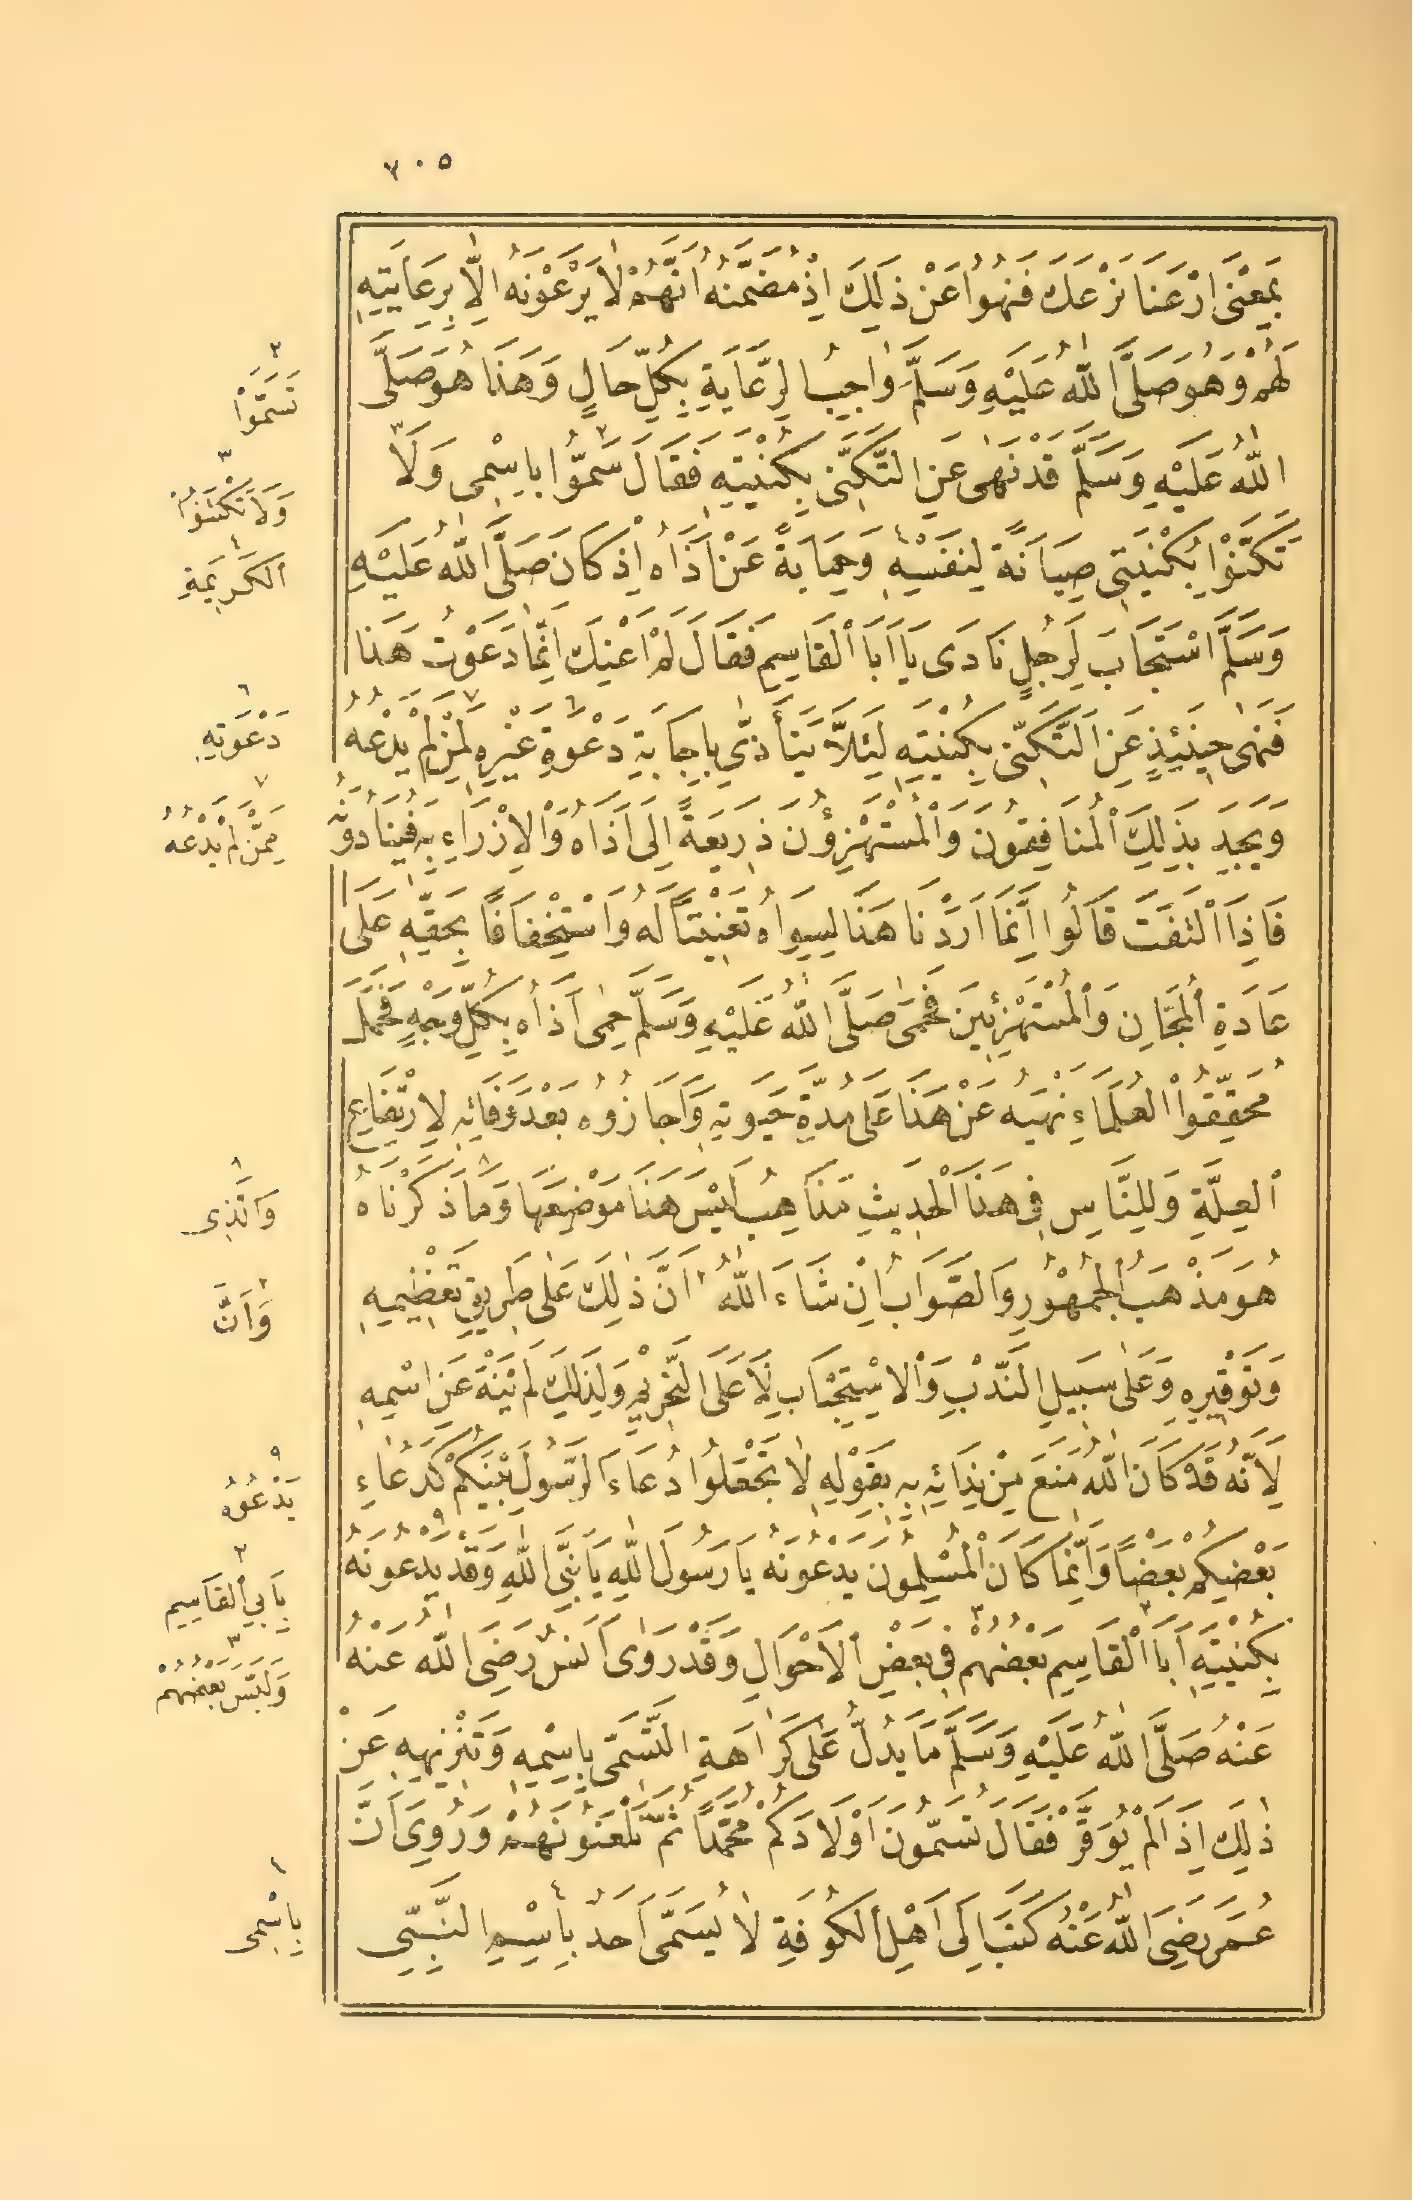 ٧٠٥
بِمَعْنَى ارْعَنَا نَرْعَكَ فَنُهُوا عَنْ ذٰلِكَ إِذْ مُضَمَّنُهُ أَنَّهُمْ لَا يَرْعَوْنَهُ إِلَّا بِرِعَايَتِهِ
لَهُمْ وَهُوَ صَلَّى اللّٰهُ عَلَيْهِ وَسَلَّمَ وَاجِبُ الرِّعَايَةِ بِكُلِّ حَالٍ وَهَذَا هُوَ صَلَّى
اللّٰهُ عَلَيْهِ وَسَلَّمَ قَدْ نَهٰى عَنِ التَّكَنِّى بِكُنْيَتِهِ فَقَالَ سَمُّوا ٢ بِاسْمِى وَلَا ٣
تَكَنَّوْا بِكُنْيَتِى صِيَانَةً لِنَفْسِهِ ٤ وَحِمَايَةً عَنْ أَذَاهُ إِذْ كَانَ صَلَّى اللّٰهُ عَلَيْهِ
وَسَلَّمَ اسْتَجَابَ لِرَجُلٍ نَادَى يَا أَبَا الْقَاسِمِ فَقَالَ لَمْ أَعْنِكَ إِنَّمَا دَعَوْتُ هَذَا
فَنَهٰى حِينَئِذٍ عَنِ التَّكَنِّى بِكُنْيَتِهِ لِئَلَّا يَتَأَذَّى بِإِجَابَةِ دَعْوَةِ ٦ غَيْرِهِ لِمَنْ ٧ لَمْ يَدْعُهُ
وَيَجِدَ بِذٰلِكَ الْمُنَافِقُونَ وَالْمُسْتَهْزِؤُنَ ذَرِيعَةً إِلَى أَذَاهُ وَالْإِزْرَاءِ بِهِ فَيُنَادُونَهُ
فَإِذَا الْتَفَتَ قَالُوا إِنَّمَا أَرَدْنَا هَذَا لِسِوَاهُ تَعْنِيتًا لَهُ وَاسْتِخْفَافًا بِحَقِّهِ عَلَى
عَادَةِ الْمُجَّانِ وَالْمُسْتَهْزِئِينَ فَحَمَى صَلَّى اللّٰهُ عَلَيْهِ وَسَلَّمَ حِمٰى أَذَاهُ بِكُلِّ وَجْهٍ فَحَمَلَ
مُحَقِّقُوا الْعُلَمَاءِ نَهْيَهُ عَنْ هَذَا عَلَى مُدَّةِ حَيٰوتِهِ وَأَجَازُوهُ بَعْدَ وَفَاتِهِ لِارْتِفَاعِ
الْعِلَّةِ وَلِلنَّاسِ فِى هَذَا الْحَدِيثِ مَذَاهِبُ لَيْسَ هَذَا مَوْضِعَهَا وَمَا ٨ ذَكَرْنَاهُ
هُوَ مَذْهَبُ الْجُمْهُورِ وَالصَّوَابُ إِنْ شَاءَ اللّٰهُ ١ أَنَّ ذٰلِكَ عَلٰى طَرِيقِ تَعْظِيمِهِ
وَتَوْقِيرِهِ وَعَلٰى سَبِيلِ النَّدْبِ وَالِاسْتِحْبَابِ لَا عَلَى التَّحْرِيمِ وَلِذٰلِكَ لَمْ يَنْهَ عَنِ اسْمِهِ
لِأَنَّهُ قَدْ كَانَ اللّٰهُ مَنَعَ مِنْ نِدَائِهِ بِهِ بِقَوْلِهِ لَا تَجْعَلُوا دُعَاءَ الرَّسُولِ بَيْنَكُمْ كَدُعَاءِ
بَعْضِكُمْ بَعْضًا وَإِنَّمَا كَانَ الْمُسْلِمُونَ يَدْعُونَهُ يَا رَسُولَ اللّٰهِ يَا نَبِىَّ اللّٰهِ وَقَدْ يَدْعُونَهُ ٩
بِكُنْيَتِهِ أَبَا الْقَاسِمِ ٢ بَعْضُهُمْ ٣ فِى بَعْضِ الْأَحْوَالِ وَقَدْ رَوٰى أَنَسٌ رَضِىَ اللّٰهُ عَنْهُ
عَنْهُ صَلَّى اللّٰهُ عَلَيْهِ وَسَلَّمَ مَا يَدُلُّ عَلٰى كَرَاهَةِ التَّسَمِّى بِاسْمِهِ وَتَنْزِيهِهِ عَنْ
ذٰلِكَ إِذَا لَمْ يُوَقَّرْ فَقَالَ تُسَمُّونَ أَوْلَادَكُمْ مُحَمَّدًا ثُمَّ تَلْعَنُونَهُمْ وَرُوِىَ أَنَّ
عُمَرَ رَضِىَ اللّٰهُ عَنْهُ كَتَبَ إِلَى أَهْلِ الْكُوفَةِ لَا يُسَمَّى أَحَدٌ بِاسْمِ ٤ النَّبِىِّ
٢
تَسَمَّوْا
٣
وَلَا تَكْتَنُوا
٤
الْكَرِيمَةِ
٦
دَعْوَتِهِ
٧
مِمَّنْ لَمْ يَدْعُهُ
٨
وَالَّذِى
١
وَأَنَّ
٩
يَدْعُوهُ
٢
بِأَبِى الْقَاسِمِ
٣
وَلَيْسَ بَعْضُهُمْ
١
بِاسْمِى